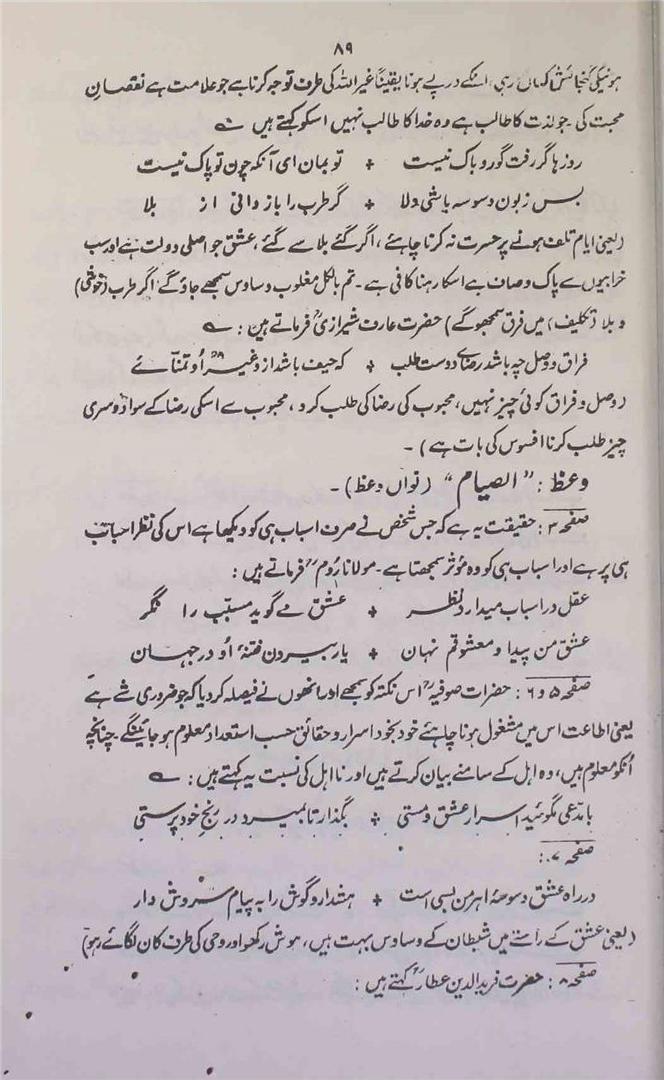 ۸۹
ہونیکی گنجائش کہاں رہی، انکے درپے ہونا یقیناً غیر اللہ کی طرف توجہ کرنا ہے جو علامت ہے نقصان
محبت کی۔ جو لذت کا طالب ہے وہ خدا کا طالب نہیں اسکو کہتے ہیں ؎
روزہا گر رفت گو رو باک نیست + تو بمان ای آنکہ چون تو پاک نیست
بس زبون وسوسہ باشی دلا + گر طرب را باز دانی از بلا
(یعنی ایام تلف ہونے پر حسرت نہ کرنا چاہئے، اگر گئے بلا سے گئے، عشق جو اصلی دولت ہے اور سب
خرابیوں سے پاک و صاف ہے اسکا رہنا کافی ہے۔ تم بالکل مغلوب وساوس سمجھے جاؤ گے اگر طرب (خوشی)
و بلا (تکلیف) میں فرق سمجھو گے) حضرت عارف شیرازیؒ فرماتے ہیں: ؎
فراق و وصل چہ باشد رضای دوست طلب + کہ حیف باشد از و غیر اُو تمنائے
(وصل و فراق کوئی چیز نہیں، محبوب کی رضا کی طلب کرو، محبوب سے اسکی رضا کے سوا دوسری
چیز طلب کرنا افسوس کی بات ہے)۔
وعظ: "الصیام" (نواں وعظ)۔
صفحہ ۳: حقیقت یہ ہے کہ جس شخص نے صرف اسباب ہی کو دیکھا ہے اس کی نظر اسباب
ہی پر ہے اور اسباب ہی کو وہ مؤثر سمجھتا ہے۔ مولانا رُومؒ فرماتے ہیں:
عقل در اسباب میدارد نظر + عشق مے گوید مسبّب را نگر
عشق من پیدا و معشوقم نہان + یار بیرون فتنۂ اُو در جہان
صفحہ ۵ و ۶: حضرات صوفیہؒ اس نکتہ کو سمجھے اور انھوں نے فیصلہ کر دیا کہ جو ضروری شے ہے
یعنی اطاعت اس میں مشغول ہونا چاہئے خود بخود اسرار و حقائق حسب استعداد معلوم ہو جائینگے۔ چنانچہ
اُنکو معلوم ہیں، وہ اہل کے سامنے بیان کرتے ہیں اور نا اہل کی نسبت یہ کہتے ہیں: ؎
با مدعی مگوئید اسرار عشق و مستی + بگذار تا بمیرد در رنج خود پرستی
صفحہ ۷:
در راہ عشق وسوسۂ اہرمن بسی است + ہشدار و گوش را بہ پیام سروش دار
(یعنی عشق کے راستے میں شیطان کے وساوس بہت ہیں، ہوش رکھو اور وحی کی طرف کان لگائے رہو)
صفحہ ۸: حضرت فرید الدین عطارؒ کہتے ہیں: